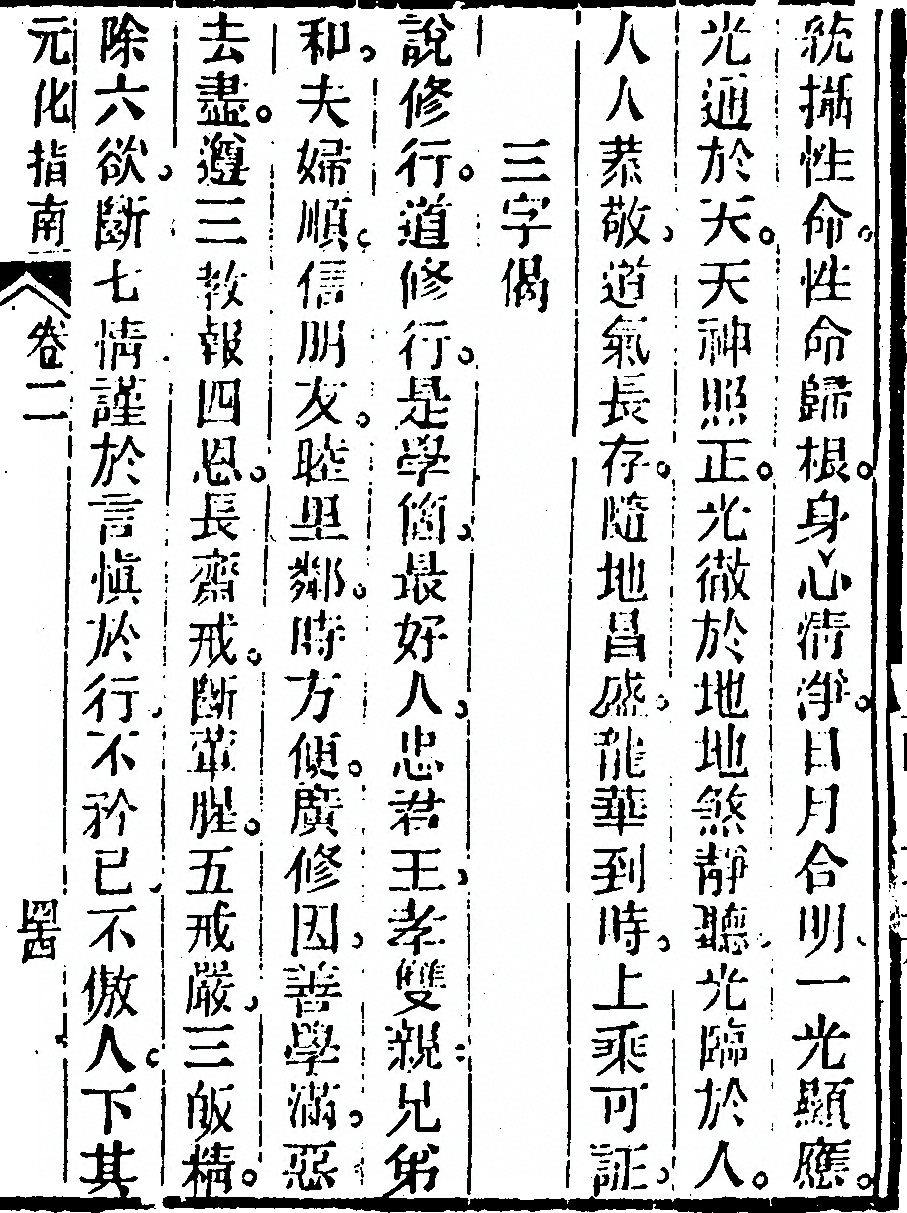 統攝性命。性命歸根。身心清淨。日月合明、一光顯應。
光通於天。天神照正。光徹於地地煞靜聽、光臨於人。
人人恭敬、道氣長存。隨地昌盛。龍華到時、上乘可証。
三字偈
說修行。道修行。是學個、最好人、忠君王、孝雙親：兄弟
和。夫婦順。信朋友。睦里鄰。時方便。廣修因、善學滿。惡
去盡。遵三教報四恩。長齋戒。斷葷腥。五戒嚴、三皈精。
除六欲、斷七情、謹於言慎於行、不矜已、不傲人。下其
元化指南 卷二 四四